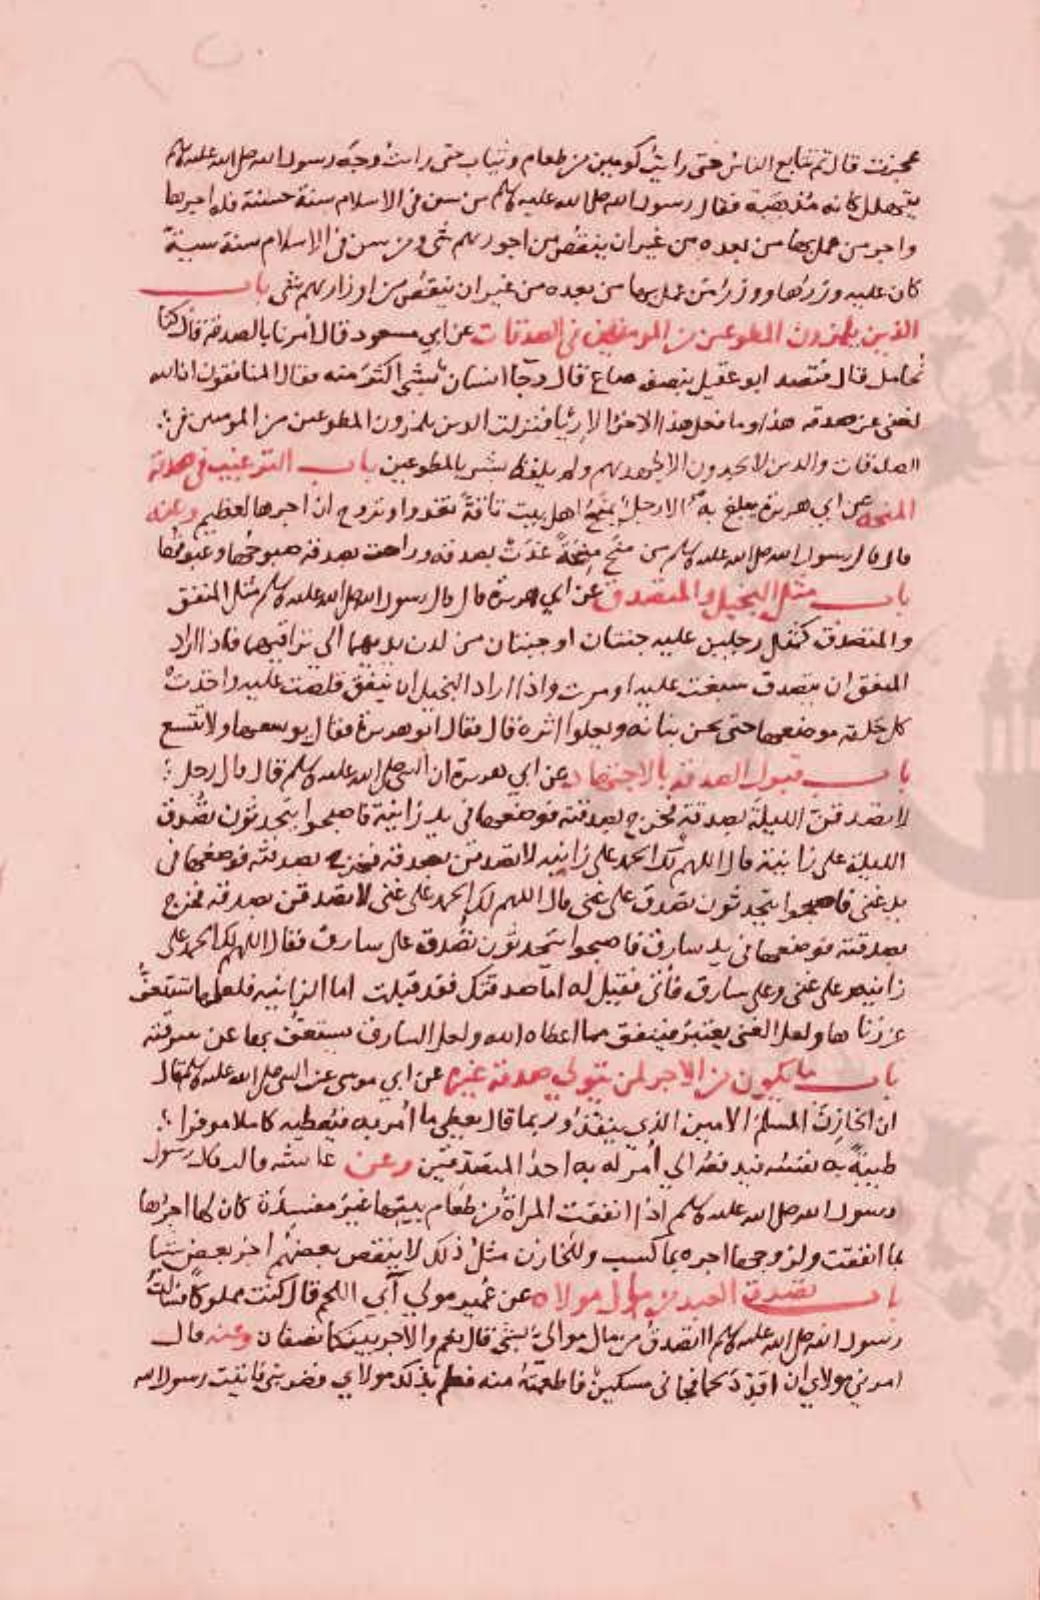 عجزت قال ثم تتابع الناس حتى رايت كومين من طعام وثياب حتى رايت وجه رسول الله صلى الله عليه وسلم
يتهلل كانه مذهبة فقال رسول الله صلى الله عليه وسلم من سن في الاسلام سنة حسنة فله اجرها
واجر من عمل بها من بعده من غير ان ينقص من اجورهم شي ومن سن في الاسلام سنة سيئة
كان عليه وزرها ووزر من عمل بها من بعده من غير ان ينقص من اوزارهم شي باب
الذين يلمزون المطوعين من المومنين في الصدقات عن ابي مسعود قال أمرنا بالصدقة قال كنا
نحامل قال فتصدق ابو عقيل بنصف صاع قال وجآ انسان بشي اكثر منه فقال المنافقون ان الله
لغني عن صدقة هذا وما فعل هذا الاخر الا رئيا فنزلت الذين يلمزون المطوعين من المومنين في
الصدقات والذين لا يجدون الا جهدهم ولم يلفظ بشر بالمطوعين باب الترغيب في صدقة
المنحة عن ابي هريرة يبلغ به الا رجل يمنح اهل بيت ناقة تغدوا وتروح ان اجرها لعظيم وعنه
قال قال رسول الله صلى الله عليه وسلم من منح منحة غدت بصدقة وراحت بصدقة صبوحها وغبوقها
باب مثل البخيل والمتصدق عن ابي هريرة قال قال رسول الله صلى الله عليه وسلم مثل المنفق
والمتصدق كمثل رجلين عليه جنتان او جبتان من لدن يديهما الى تراقيهما فاذا اراد
المنفق ان يتصدق سبغت عليه او مرت واذا اراد البخيل ان ينفق قلصت عليه واخذت
كل حلقة موضعها حتى تجن بنانه وتعفوا اثره قال فقال ابو هريرة فقال يوسعها ولا تتسع
باب قبول الصدقة بالاجتهاد عن ابي هريرة ان النبي صلى الله عليه وسلم قال قال رجل
لاتصدقن الليلة بصدقة فخرج بصدقته فوضعها في يد زانية فاصبحوا يتحدثون تصدق
الليلة على زانية قال اللهم لك الحمد على زانية لاتصدقن بصدقة فخرج بصدقته فوضعها في
يد غني فاصبحوا يتحدثون تصدق على غني قال اللهم لك الحمد على غني لاتصدقن بصدقة فخرج
بصدقته فوضعها في يد سارق فاصبحوا يتحدثون تصدق على سارق فقال اللهم لك الحمد على
زانية وعلى غني وعلى سارق فأتي فقيل له اما صدقتك فقد قبلت اما الزانية فلعلها تستعف
عن زناها ولعل الغني يعتبر فينفق مما اعطاه الله ولعل السارق يستعف بها عن سرقته
باب ما يكون من الاجر لمن يتولى صدقة غيره عن ابي موسى عن النبي صلى الله عليه وسلم قال
ان الخازن المسلم الامين الذي ينفذ وربما قال يعطي ما أمر به فيعطيه كاملا موفرا
طيبة به نفسه فيدفعه الى الذي أمر له به احد المتصدقين وعن عائشة قالت قال رسول
رسول الله صلى الله عليه وسلم اذا انفقت المرأة من طعام بيتها غير مفسدة كان لها اجرها
بما انفقت ولزوجها اجره بما كسب وللخازن مثل ذلك لا ينقص بعضهم اجر بعض شيا
باب تصدق العبد من مال مولاه عن عمير مولى آبي اللحم قال كنت مملوكا فسالت
رسول الله صلى الله عليه وسلم أاتصدق من مال موالي بشي قال نعم والاجر بينكما نصفان وعنه قال
امرني مولاي ان اقدد لحما فجاني مسكين فاطعمته منه فعلم بذلك مولاي فضربني فاتيت رسول الله